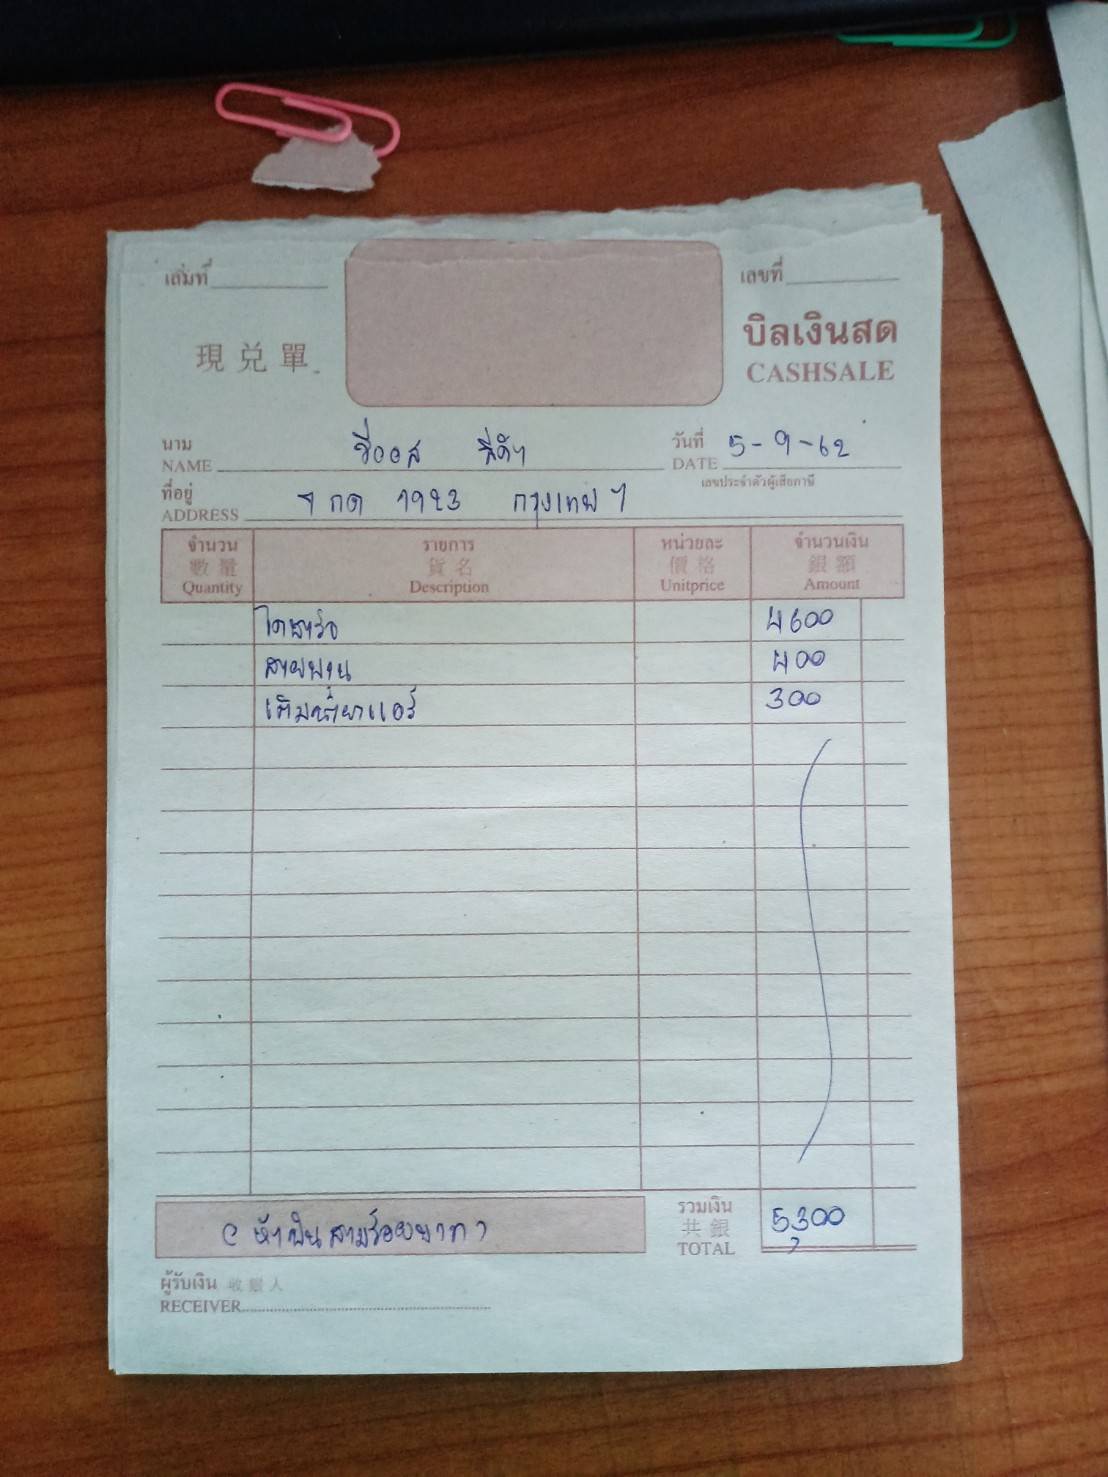 เล่มที่ เลขที่
現兑單 บิลเงินสด
CASHSALE
นาม วันที่ 5-9-62
NAME DATE
เลขประจำตัวผู้เสียภาษี
ที่อยู่ 1 กด 1923 กรุงเทพฯ
ADDRESS
จำนวน รายการ หน่วยละ จำนวนเงิน
數量 貨名 價格 銀額
Quantity Description Unitprice Amount
ไดชาร์จ 4600
สายพาน 400
เติมน้ำยาแอร์ 300
รวมเงิน 5,300
共銀
(ห้าพันสามร้อยบาท) TOTAL
ผู้รับเงิน 收銀人
RECEIVER